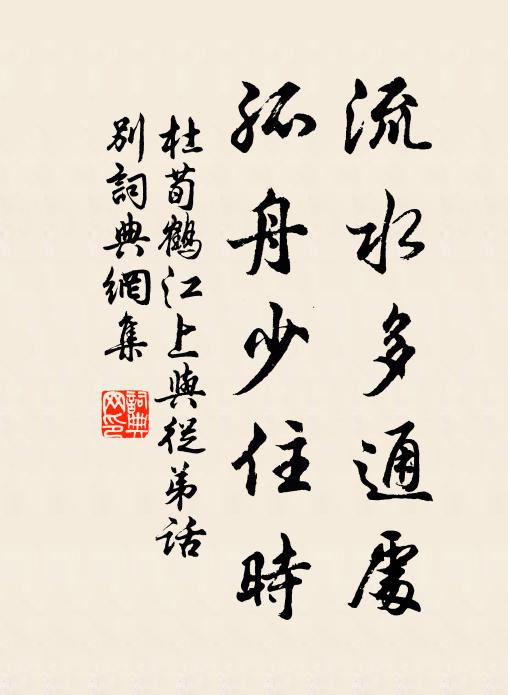 流水多通處
孤舟少住時
杜荀鶴江上與從弟話
別詞典網集
詞典网印